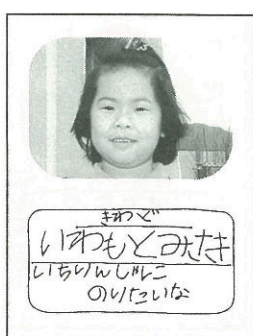 いわもとみさき
いちりんしゃに
のりたいな